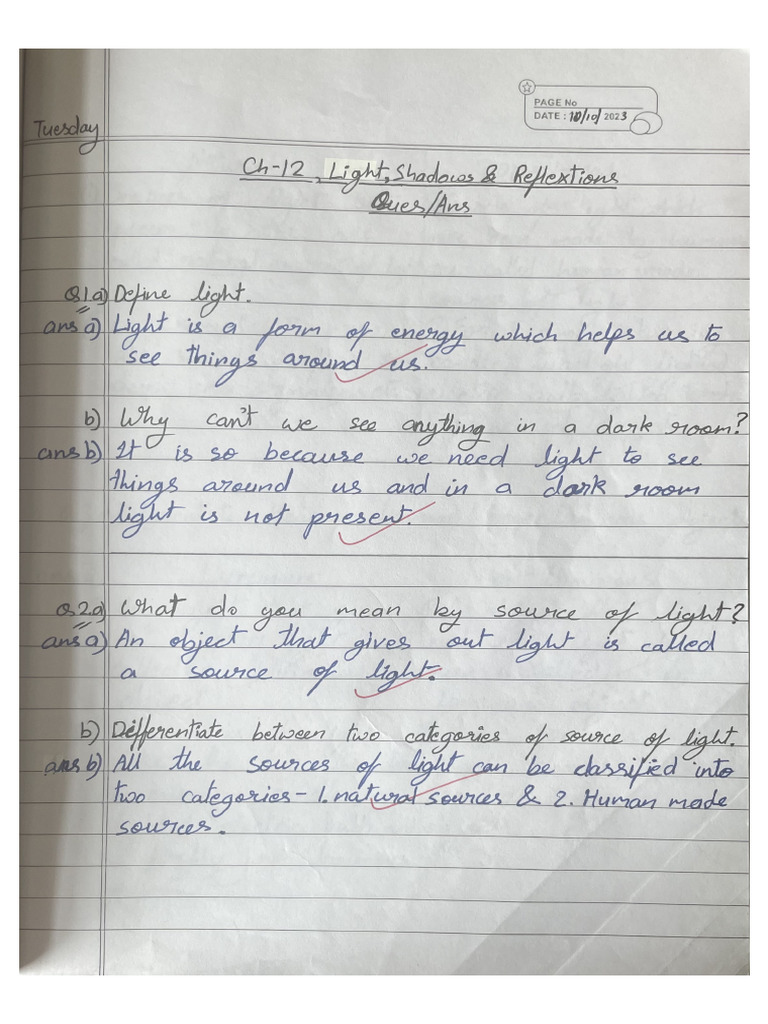 PAGE No
DATE : 10/10/2023
Tuesday
Ch-12, Light, Shadows & Reflextions
Ques/Ans
Q.1a) Define light.
ans a) Light is a form of energy which helps us to
see things around us.
b) Why can't we see anything in a dark room?
ans b) It is so because we need light to see
things around us and in a dark room
light is not present.
Q.2.a) What do you mean by source of light?
ans a) An object that gives out light is called
a source of light.
b) Differentiate between two categories of source of light.
ans b) All the sources of light can be classified into
two categories- 1. natural sources & 2. Human made
sources.